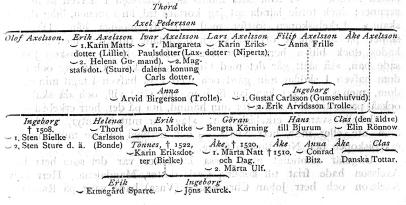 Thord
Axel Pedersson
Olof Axelsson. Erik Axelsson Ivar Axelsson Lars Axelsson Filip Axelsson Åke Axelsson
1. Karin Mats- 1. Margareta Karin Eriks- Anna Frille
dotter (Lillie). Paulsdotter (Lax- dotter (Nipertz).
2. Helena Gu- mand). 2. Mag-
stafsdot. (Sture). dalena konung
Carls dotter.
Anna Ingeborg
Arvid Birgersson (Trolle). 1. Gustaf Carlsson (Gumsehufvud)
2. Erik Arvidsson Trolle.
Ingeborg Helena Erik Göran Hans Clas (den äldre)
† 1508. Thord Anna Moltke Bengta Körning till Bjurum Elin Rönnow
1. Sten Bielke Carlsson Tönnes, † 1522, Åke, † 1520, Åke Anna Åke Clas
2. Sten Sture d. ä. (Bonde) Karin Eriksdot- 1. Märta Natt † 1510, Conrad Danska Tottar.
ter (Bielke) och Dag. Bitz.
2. Märta Ulf.
Erik Ingeborg
Ermegård Sparre. Jöns Kurck.